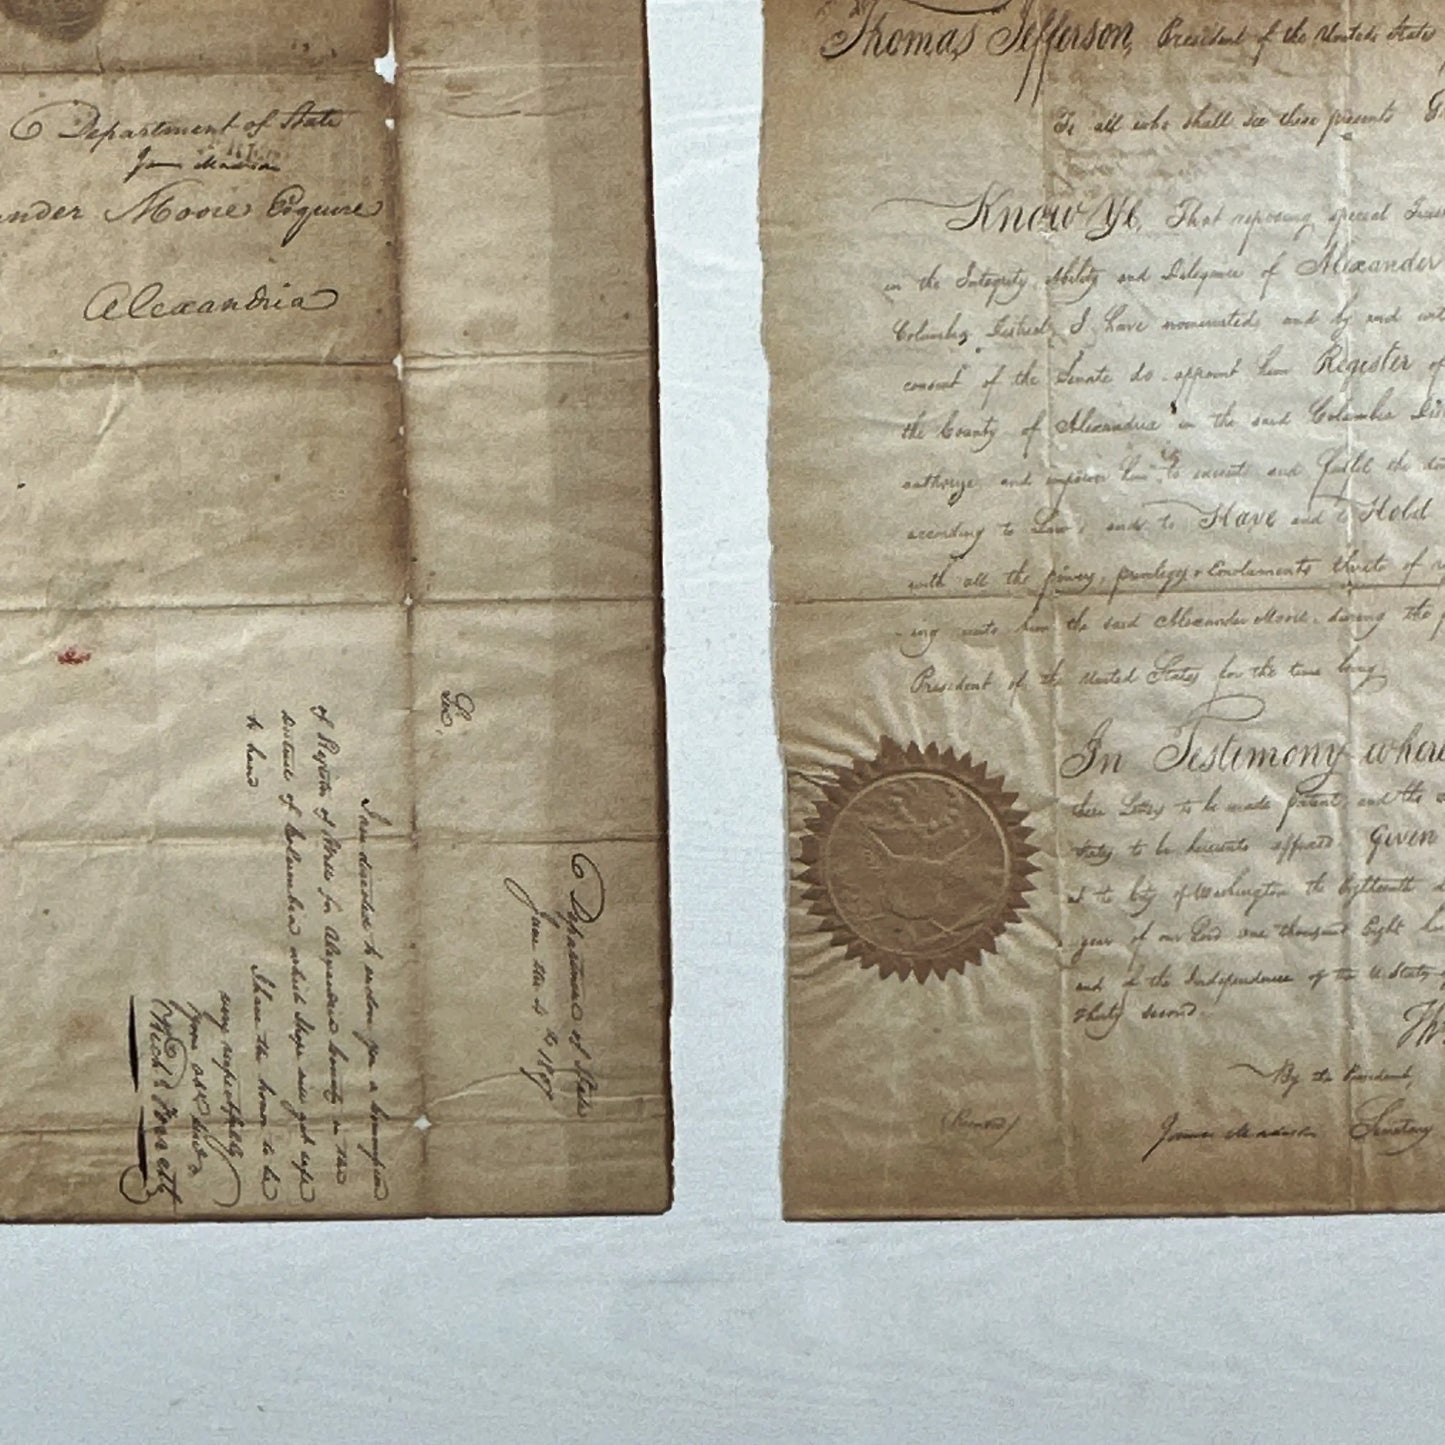 Department of State
James Madison
ander Moore Esquire
Alexandria
Department of State
June the 4th 1807
Sir,
I am directed to enclose you a Commission
of Register of Wills for Alexandria County in the
District of Columbia which I hope will get safe
to hand
I have the honor to be
very respectfully
your obt
Thomas Jefferson, President of the United States
To all who shall see these presents
Know Ye, That reposing special Trust
in the Integrity Ability and Diligence of Alexander
Columbia District, I have nominated and by and
consent of the Senate do appoint him Register of
the County of Alexandria in the said Columbia
authorize and empower him to execute and fulfil the
according to Law, and to Have and to Hold
with all the powers, privileges & Emoluments thereto of
ing unto him the said Alexander Moore, during the
President of the United States for the time being
In Testimony where
these Letters to be made patent, and the
States to be hereunto affixed Given
at the City of Washington the Eighteenth
year of our Lord one thousand Eight
and of the Independence of the U. States of
Thirty second.
Th
By the President,
James Madison Secretary